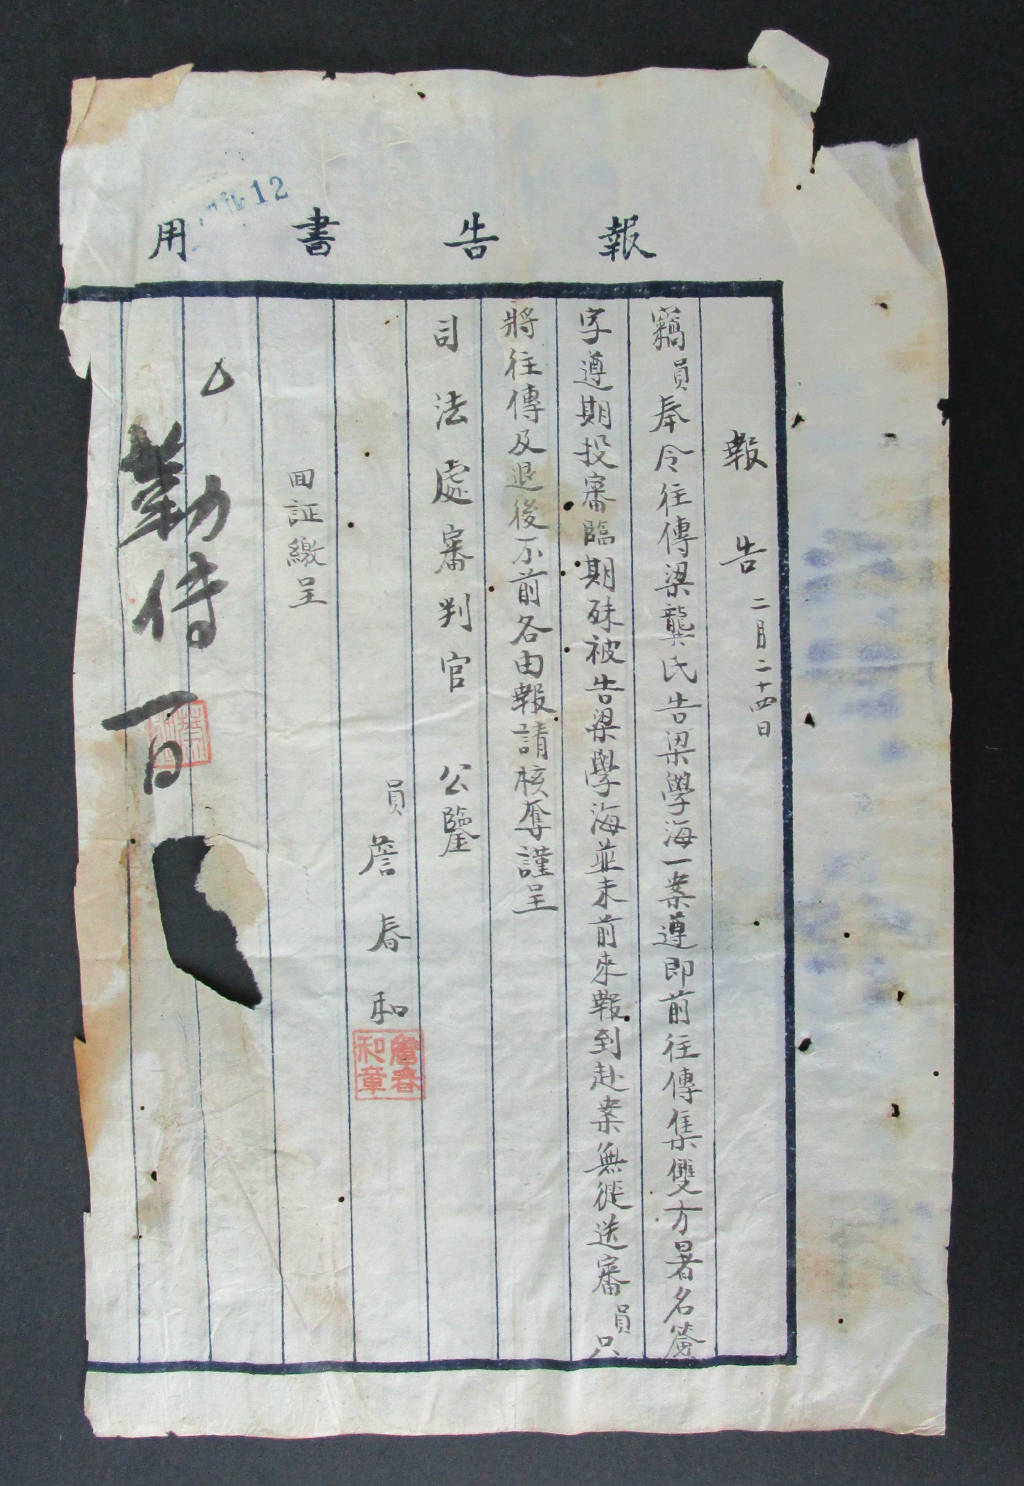 報告書用
12
報告 二月二十四日
竊員奉令往傳梁龔氏告梁學海一案遵即前往傳集雙方署名簽
字遵期投審臨期殊被告梁學海並未前來報到赴案無從送審員只
將往傳及退後不前各由報請核奪謹呈
司法處審判官 公鑒
員詹春和
詹春和章
回証繳呈
勒傳